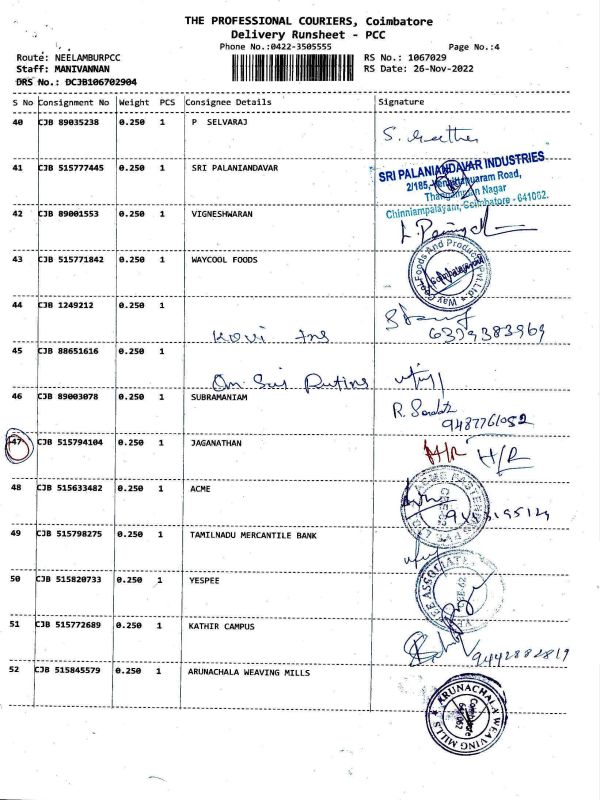 THE PROFESSIONAL COURIERS, Coimbatore
Delivery Runsheet - PCC
Phone No.:0422-3505555
Page No.:4
Route: NEELAMBURPCC
RS No.: 1067029
Staff: MANIVANNAN
RS Date: 26-Nov-2022
DRS No.: DCJB106702904
S No Consignment No Weight PCS Consignee Details Signature
40 CJB 89035238 0.250 1 P SELVARAJ
41 CJB 515777445 0.250 1 SRI PALANIANDAVAR
SRI PALANIANDAVAR INDUSTRIES
2/185, Road,
Nagar
Chinniampalayam, Coimbatore - 641062.
42 CJB 89001553 0.250 1 VIGNESHWARAN
43 CJB 515771842 0.250 1 WAYCOOL FOODS
Way Cool Foods And Products Pvt Ltd
44 CJB 1249212 0.250 1
6379383969
Kovi Ins
45 CJB 88651616 0.250 1
Om Sri
46 CJB 89003078 0.250 1 SUBRAMANIAM
R.
9487761052
47 CJB 515794104 0.250 1 JAGANATHAN
H/R H/R
48 CJB 515633482 0.250 1 ACME
ACME FASTENERS PVT LTD
49 CJB 515798275 0.250 1 TAMILNADU MERCANTILE BANK
50 CJB 515820733 0.250 1 YESPEE
51 CJB 515772689 0.250 1 KATHIR CAMPUS
9442882819
52 CJB 515845579 0.250 1 ARUNACHALA WEAVING MILLS
ARUNACHALA WEAVING MILLS